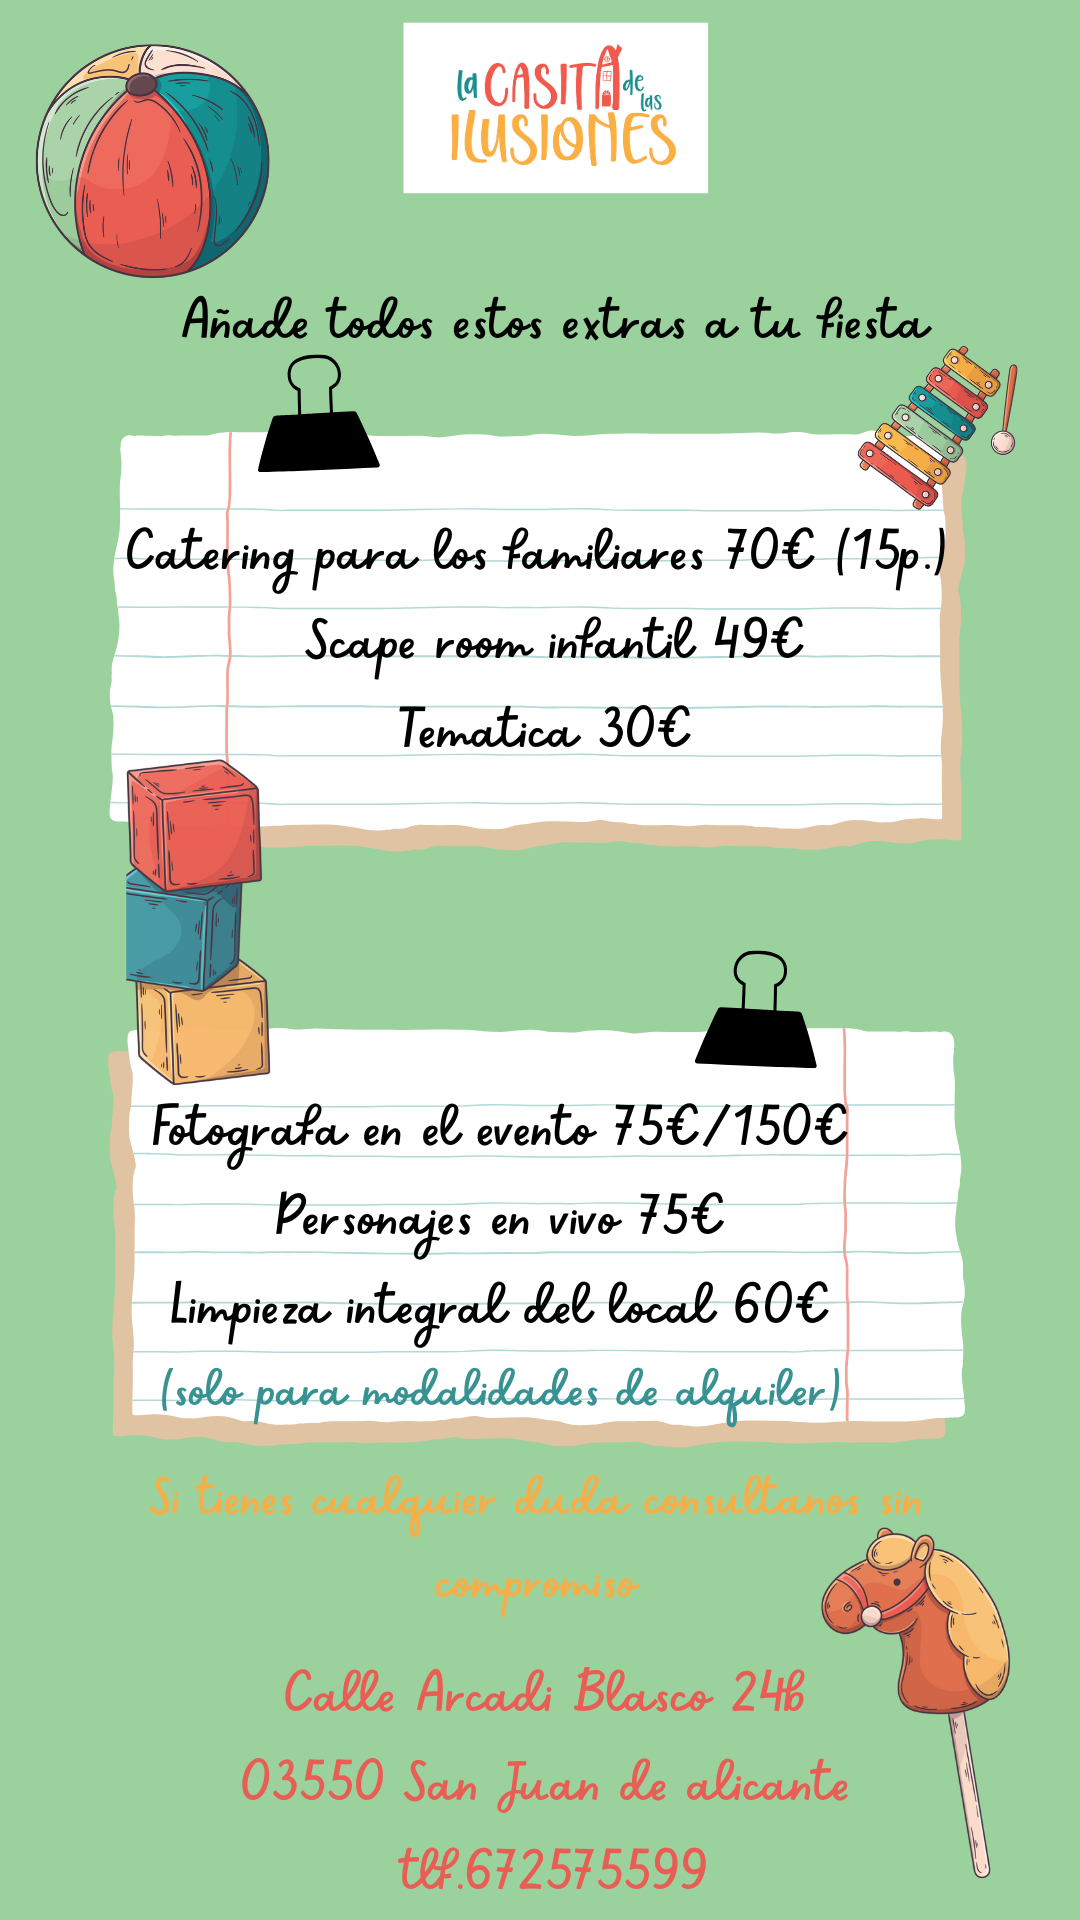 la CASITA de las
ILUSIONES
Añade todos estos extras a tu fiesta
Catering para los familiares 70€ (15p.)
Scape room infantil 49€
Tematica 30€
Fotografa en el evento 75€/150€
Personajes en vivo 75€
Limpieza integral del local 60€
(solo para modalidades de alquiler)
Si tienes cualquier duda consultanos sin
compromiso
Calle Arcadi Blasco 24b
03550 San Juan de alicante
tlf.672575599